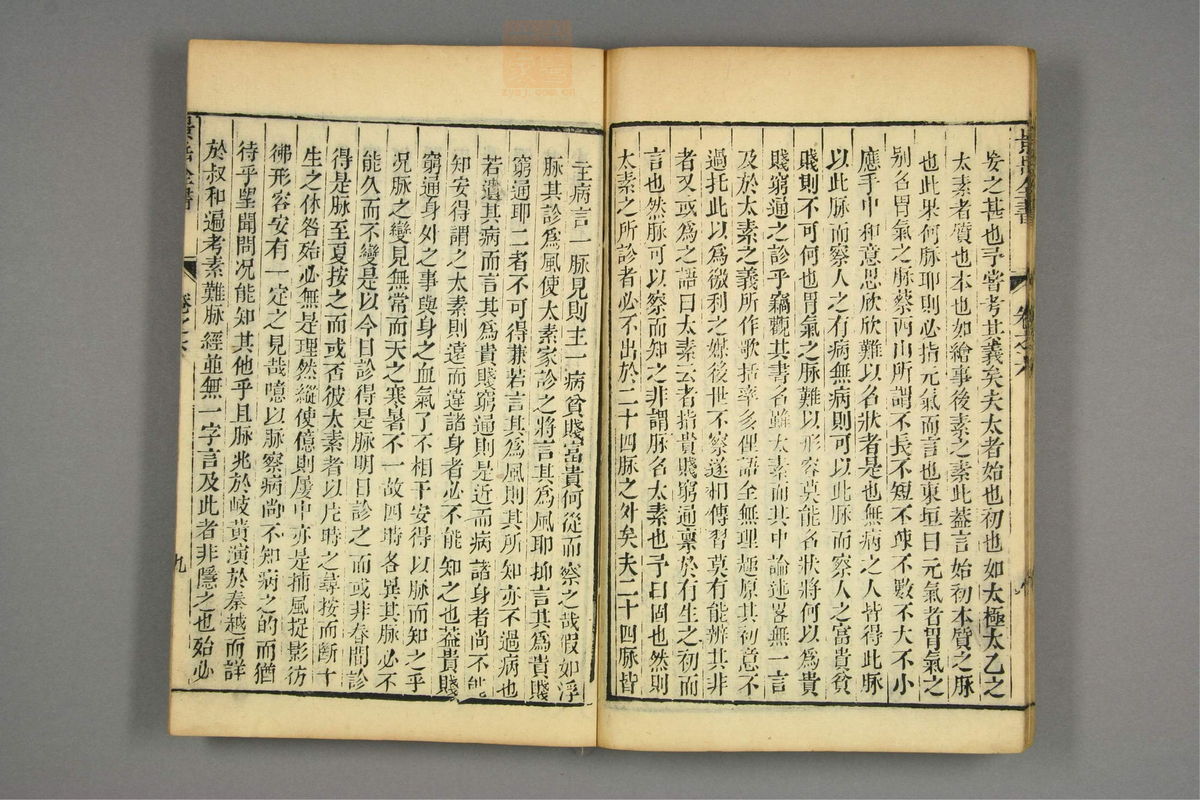 景岳全書
卷之六
妄之甚也予嘗考其義矣夫太者始也初也如太極太乙之
太素者質也本也如繪事後素之素此蓋言始初本質之脉
也此果何脉耶則必指元氣而言也東垣曰元氣者胃氣之
别名胃氣之脉蔡西山所謂不長不短不疎不數不大不小
應手中和意思欣欣難以名狀者是也無病之人皆得此脉
以此脉而察人之有病無病則可以此脉而察人之富貴貧
賤則不可何也胃氣之脉難以形容莫能名狀將何以爲貴
賤窮通之診乎竊觀其書名雖太素而其中論述畧無一言
及於太素之義所作歌括率多俚語全無理趣原其初意不
過托此以爲徼利之媒後世不察遂相傳習莫有能辨其非
者又或爲之語曰太素云者指貴賤窮通禀於有生之初而
言也然脉可以察而知之非謂脉名太素也予曰固也然則
太素之所診者必不出於二十四脉之外矣夫二十四脉皆
主病言一脉見則主一病貧賤富貴何從而察之哉假如浮
脉其診爲風使太素家診之將言其爲風耶抑言其爲貴賤
窮通耶二者不可得兼若言其爲風則其所知亦不過病也
若遺其病而言其爲貴賤窮通則是近而病諸身者尚不能
知安得謂之太素則遠而違諸身者必不能知之也蓋貴賤
窮通身外之事與身之血氣了不相干安得以脉而知之乎
况脉之變見無常而天之寒暑不一故四時各異其脉必不
能久而不變是以今日診得是脉明日診之而或非春間診
得是脉至夏按之而或否彼太素者以片時之尋按而斷十
生之休咎殆必無是理然縱使億則屢中亦是捕風捉影彷
彿形容安有一定之見哉噫以脉察病尚不知病之的而猶
待乎望聞問况能知其他乎且脉兆於岐黃演於秦越而詳
於叔和遍考素難脉經並無一字言及此者非隱之也殆必
景岳全書
卷之六
九